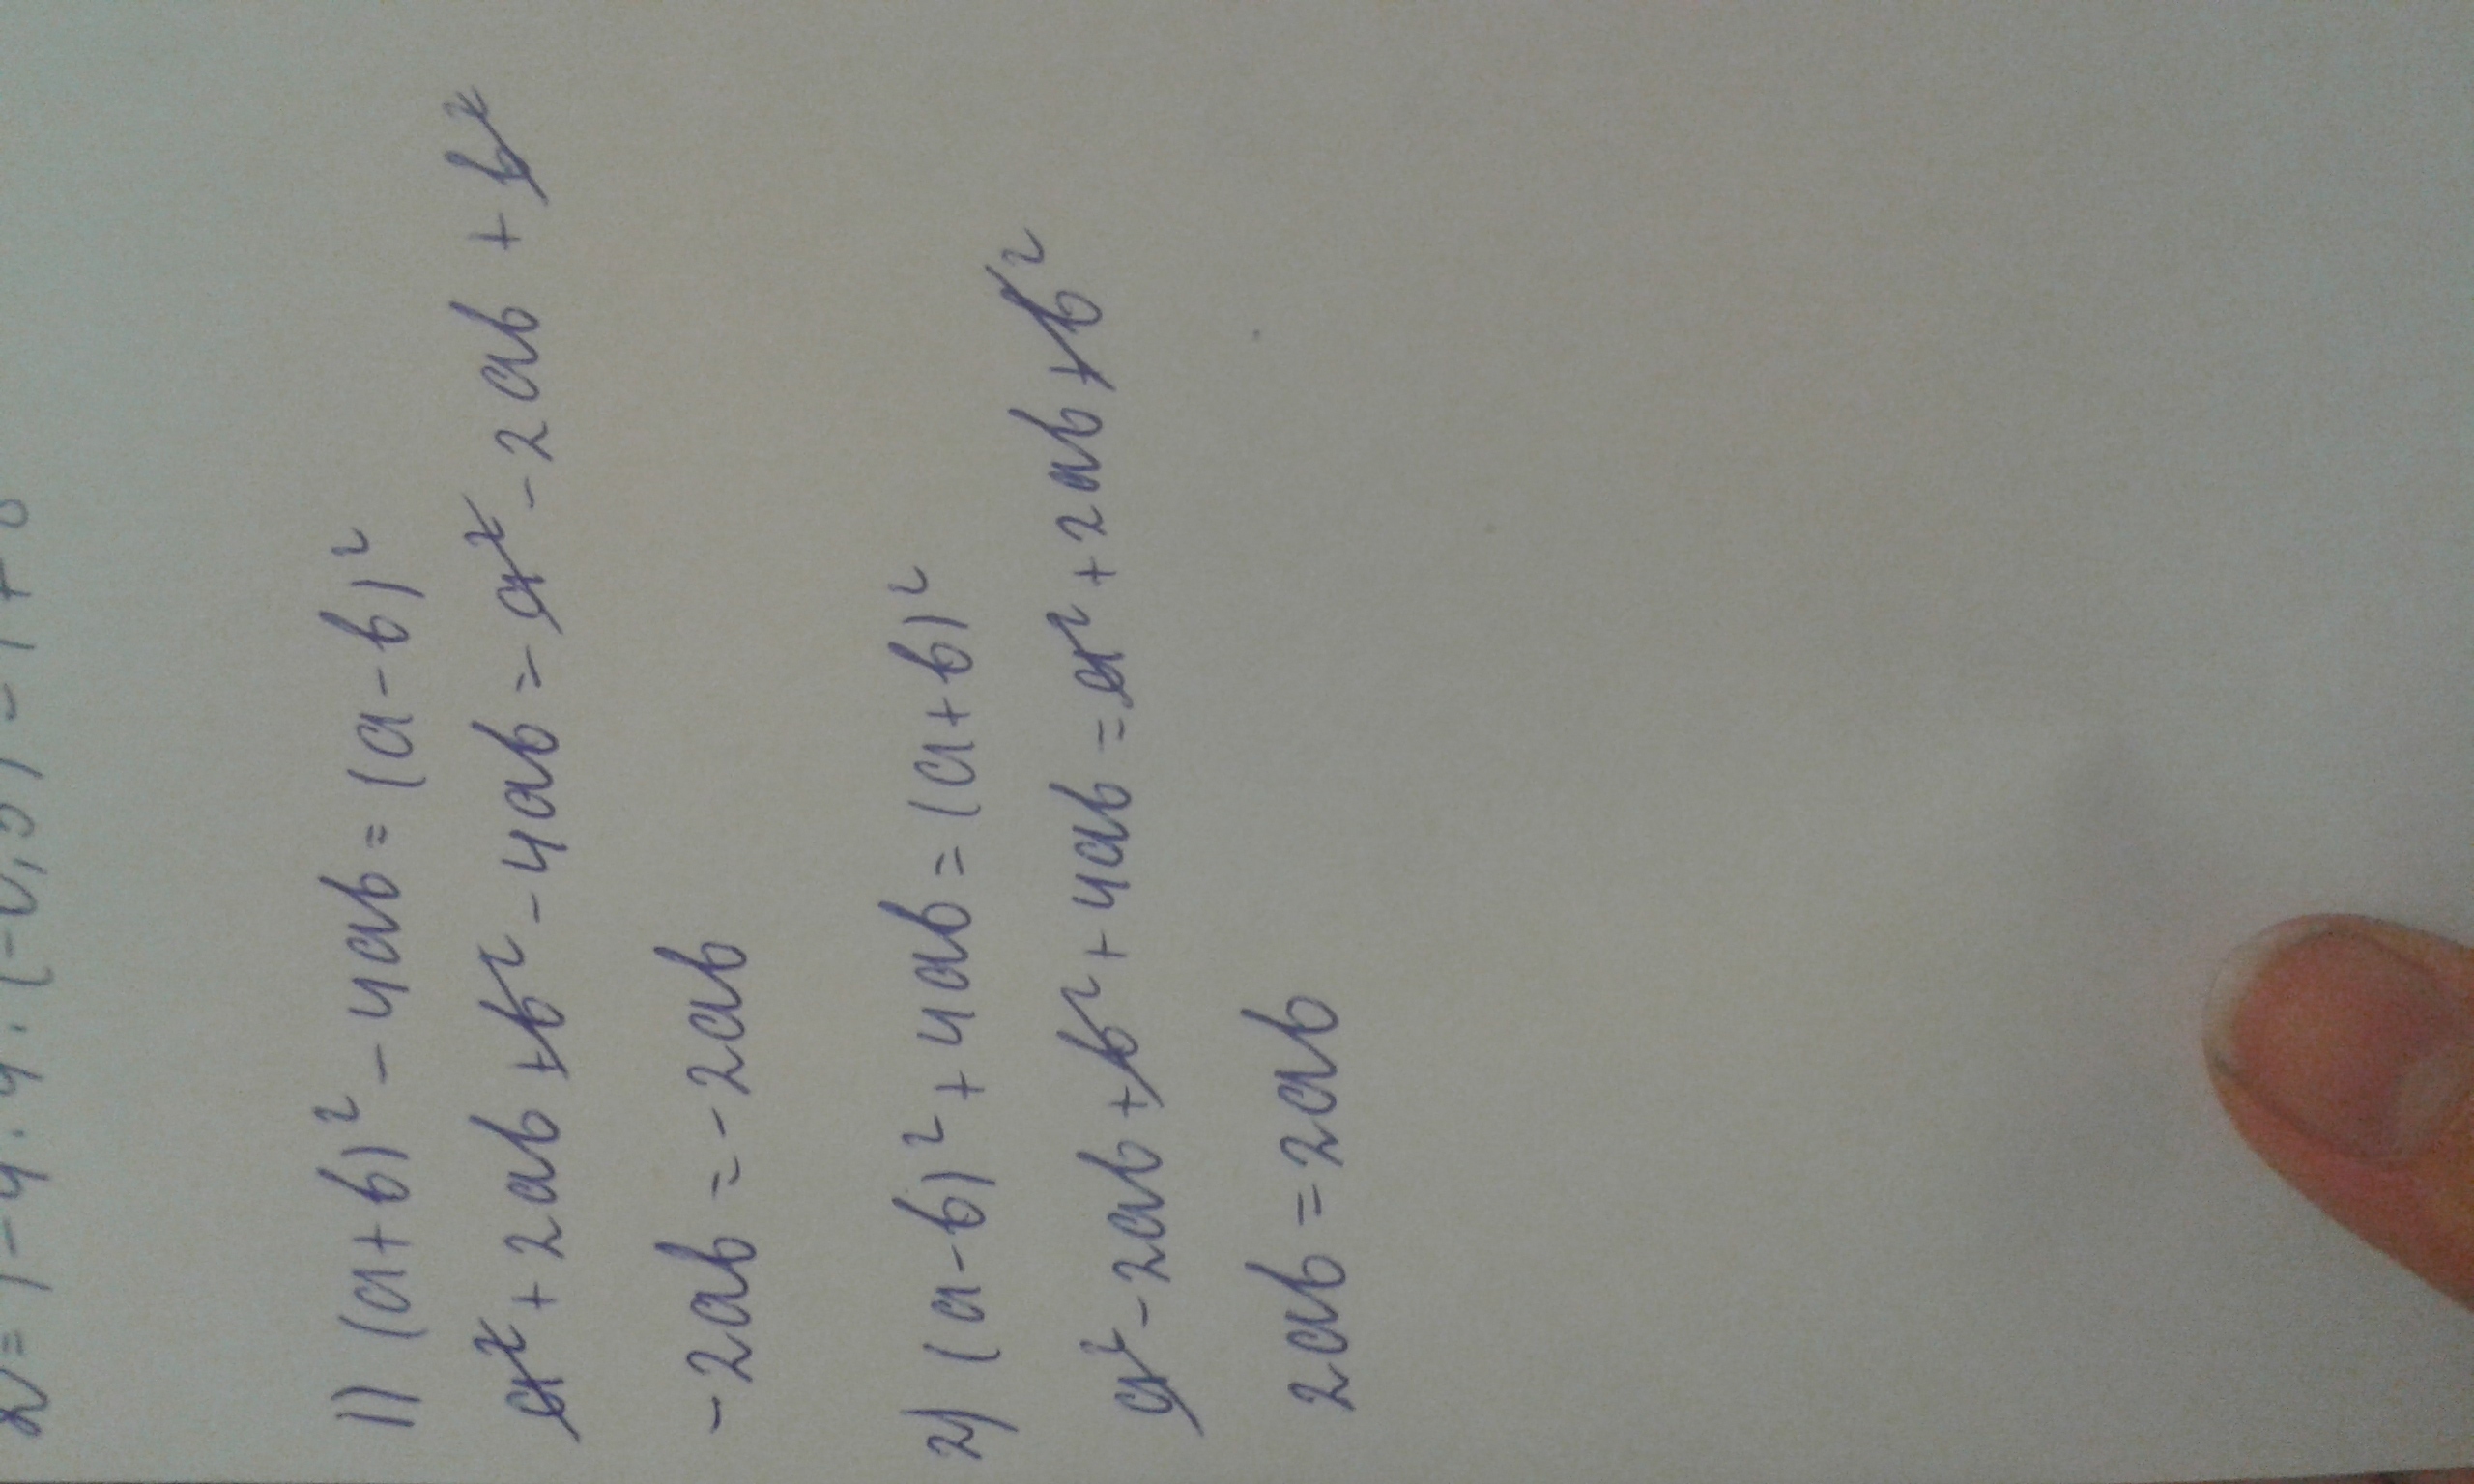 1) (a+b)² - 4ab = (a-b)²
a² + 2ab + b² - 4ab = a² - 2ab + b²
-2ab = -2ab
2) (a-b)² + 4ab = (a+b)²
a² - 2ab + b² + 4ab = a² + 2ab + b²
2ab = 2ab